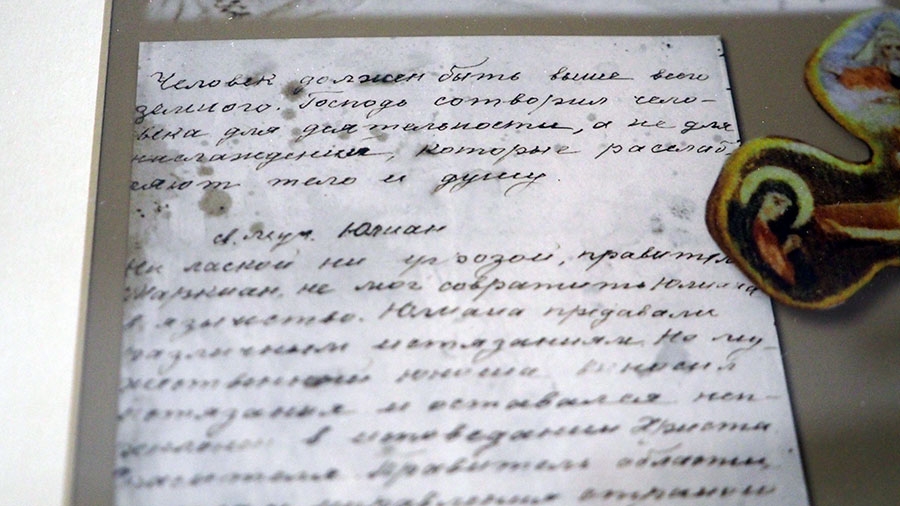 Человек должен быть выше всего
земного. Господь сотворил чело-
века для деятельности, а не для
наслаждения, которые расслаб-
ляют тело и душу.
св. муч. Юлиан
Ни лаской ни угрозой, правитель
Маркиан, не мог совратить Юлиана
в язычество. Юлиана предавали
различным истязаниям. Но му-
жественный юноша выносил
истязания и оставался неп-
в исповедании Христа
Спасителя. Правитель области,
управления страной